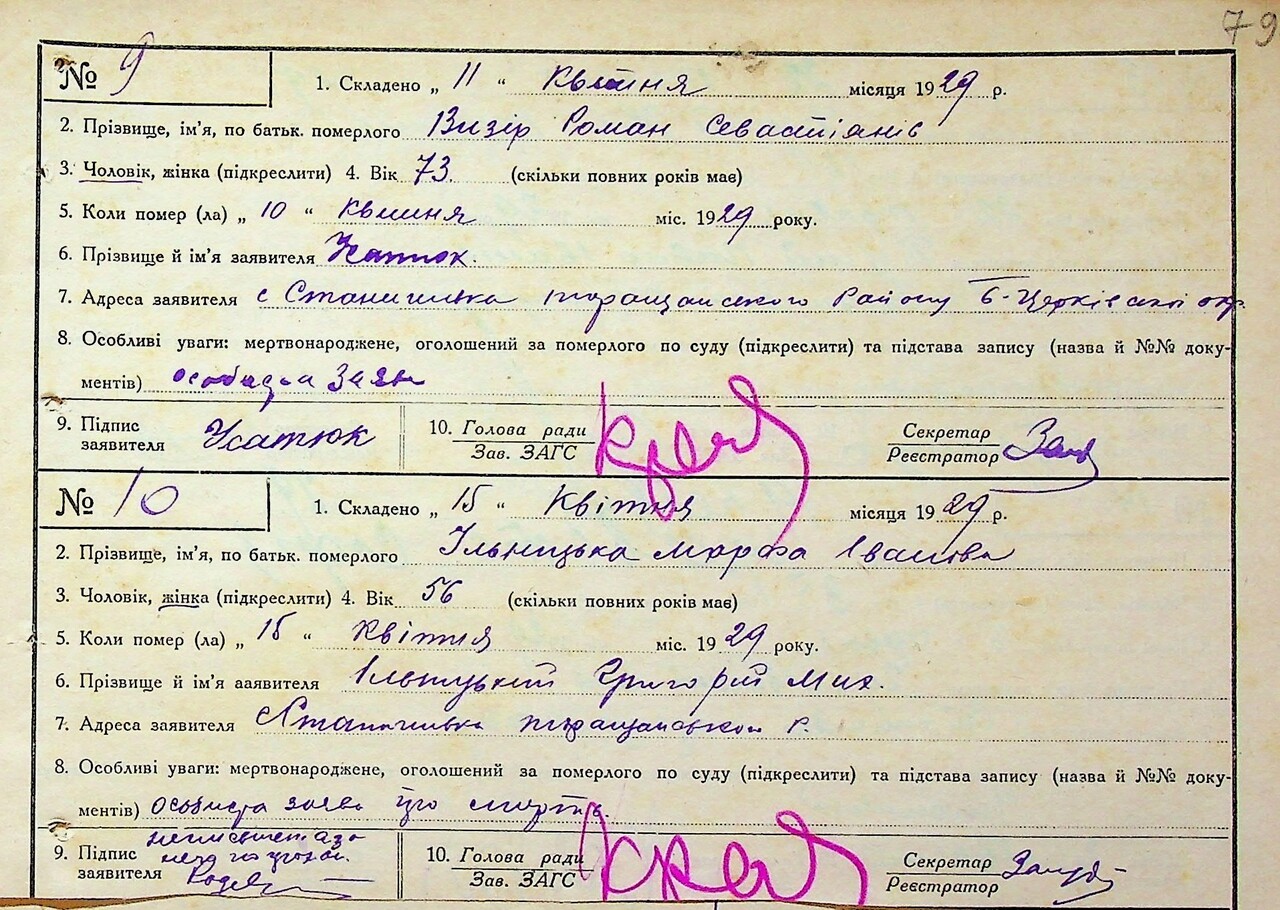 79
№ 9
1. Складено „ 11 “ Квітня місяця 1929 р.
2. Прізвище, ім'я, по батьк. померлого Візір Роман Севастіянів
3. Чоловік, жінка (підкреслити) 4. Вік 73 (скільки повних років має)
5. Коли помер (ла) „ 10 “ Квітня міс. 1929 року.
6. Прізвище й ім'я заявителя Усатюк.
7. Адреса заявителя с Станишивка таращанського Району Б-Церківської окр.
8. Особливі уваги: мертвонароджене, оголошений за померлого по суду (підкреслити) та підстава запису (назва й №№ доку-
ментів) заява
9. Підпис заявителя Усатюк 10. Голова ради Зав. ЗАГС Секретар Реєстратор
№ 10
1. Складено „ 15 “ Квітня місяця 1929 р.
2. Прізвище, ім'я, по батьк. померлого Ільницька Марфа Іванова
3. Чоловік, жінка (підкреслити) 4. Вік 56 (скільки повних років має)
5. Коли помер (ла) „ 15 “ Квітня міс. 1929 року.
6. Прізвище й ім'я заявителя Ільницький Григорій Мих.
7. Адреса заявителя с Станишивка таращанського Р.
8. Особливі уваги: мертвонароджене, оголошений за померлого по суду (підкреслити) та підстава запису (назва й №№ доку-
ментів) особиста заява про смерть.
9. Підпис заявителя 10. Голова ради Зав. ЗАГС Секретар Реєстратор